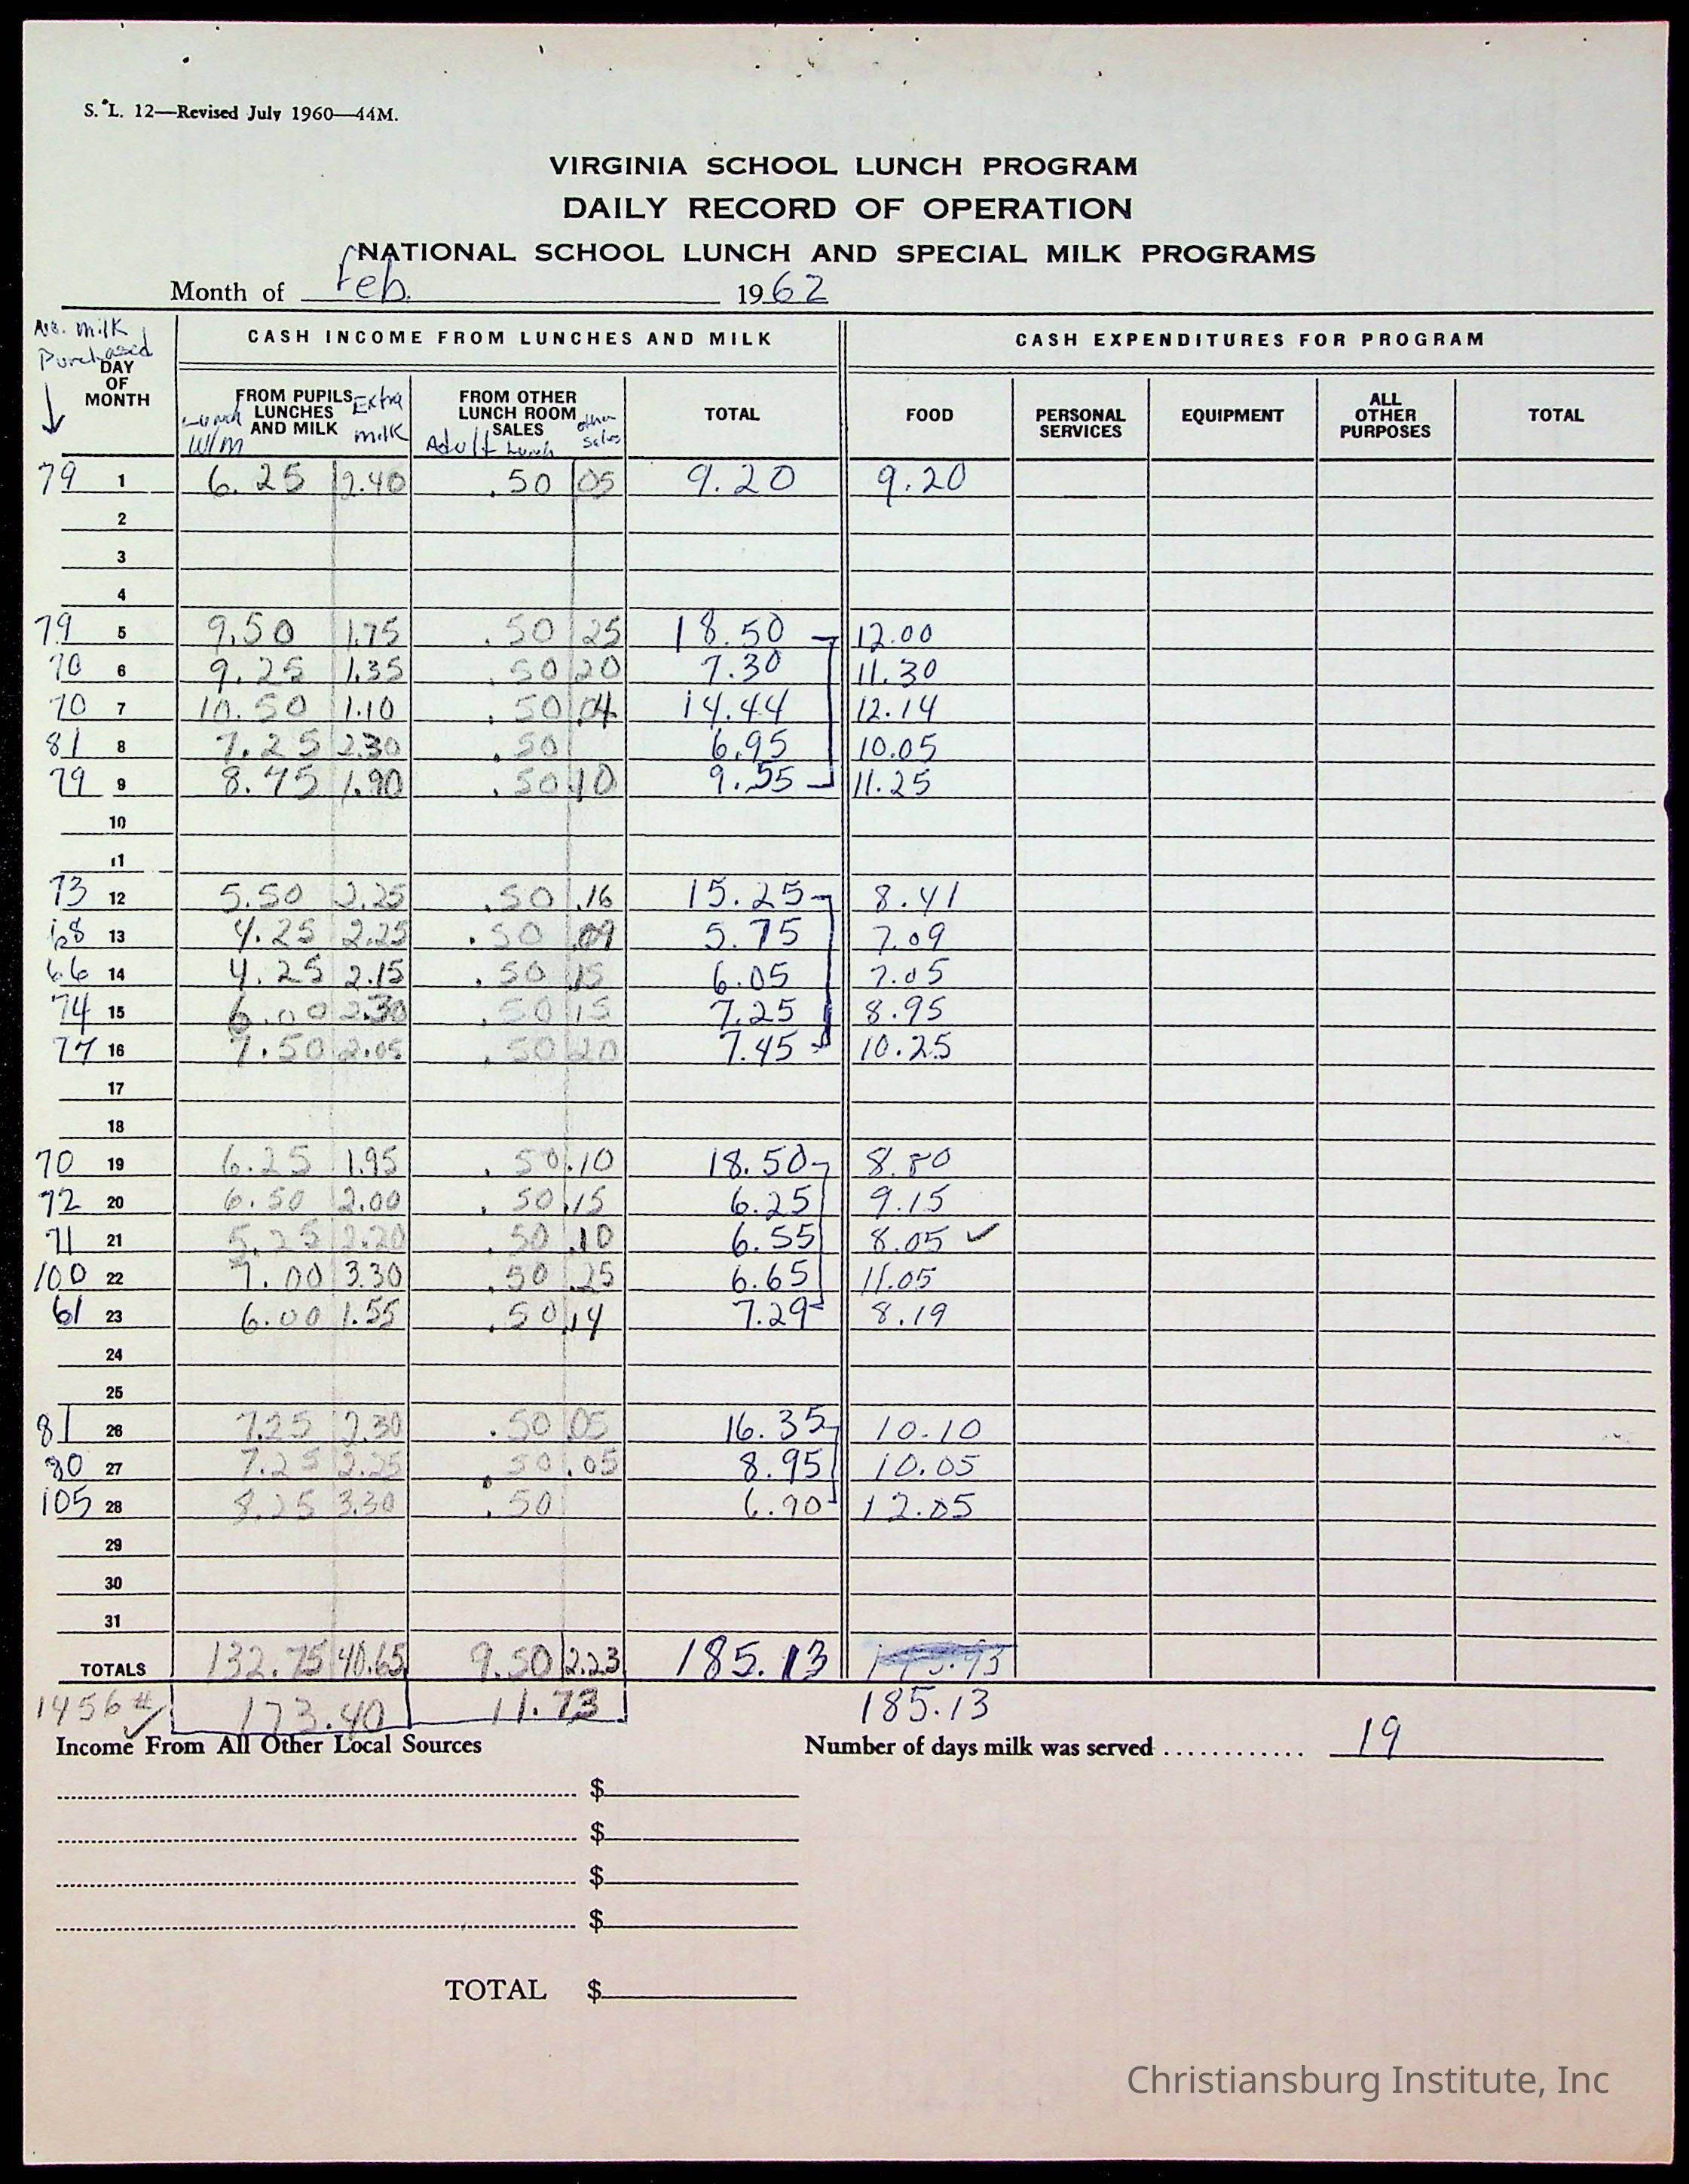 S. L. 12—Revised July 1960—44M.
VIRGINIA SCHOOL LUNCH PROGRAM
DAILY RECORD OF OPERATION
NATIONAL SCHOOL LUNCH AND SPECIAL MILK PROGRAMS
Month of Feb. 1962
milk Purchased
DAY OF MONTH
CASH INCOME FROM LUNCHES AND MILK
CASH EXPENDITURES FOR PROGRAM
FROM PUPILS LUNCHES AND MILK
Lunch W/M
Extra milk
FROM OTHER LUNCH ROOM SALES
Adult Lunch
other sales
TOTAL
FOOD
PERSONAL SERVICES
EQUIPMENT
ALL OTHER PURPOSES
TOTAL
79 1 6.25 2.40 .50 05 9.20 9.20
2
3
4
79 5 9.50 1.75 .50 25 18.50 12.00
70 6 9.25 1.35 .50 20 7.30 11.30
70 7 10.50 1.10 .50 .04 14.44 12.14
81 8 7.25 2.30 .50 6.95 10.05
79 9 8.75 1.90 .50 10 9.55 11.25
10
11
73 12 5.50 2.25 .50 .16 15.25 8.41
68 13 4.25 2.25 .50 .09 5.75 7.09
66 14 4.25 2.15 .50 15 6.05 7.05
74 15 6.00 2.30 .50 15 7.25 8.95
77 16 7.50 2.05 .50 20 7.45 10.25
17
18
70 19 6.25 1.95 .50 .10 18.50 8.80
72 20 6.50 2.00 .50 .15 6.25 9.15
71 21 5.25 2.20 .50 .10 6.55 8.05 ✓
100 22 7.00 3.30 .50 .25 6.65 11.05
61 23 6.00 1.55 .50 .14 7.29 8.19
24
25
81 26 7.25 2.30 .50 05 16.35 10.10
80 27 7.25 2.25 .50 .05 8.95 10.05
105 28 8.25 3.30 .50 6.90 12.05
29
30
31
TOTALS 132.75 40.65 9.50 2.23 185.13
1456 # ✓ 173.40 11.73 185.13
Income From All Other Local Sources
Number of days milk was served ............ 19
$
$
$
$
TOTAL $
Christiansburg Institute, Inc